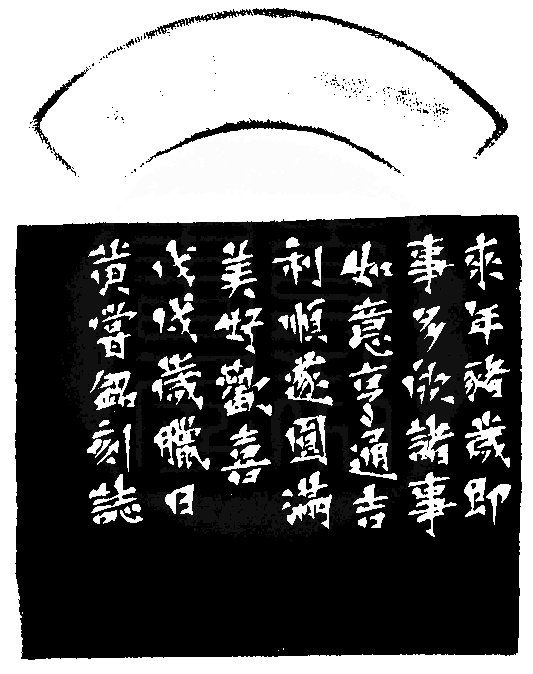 來年豬歲即
事多欣諸事
如意亨通吉
利順遂圓滿
美好歡喜
戊戌歲臘日
黃嘗銘刻誌